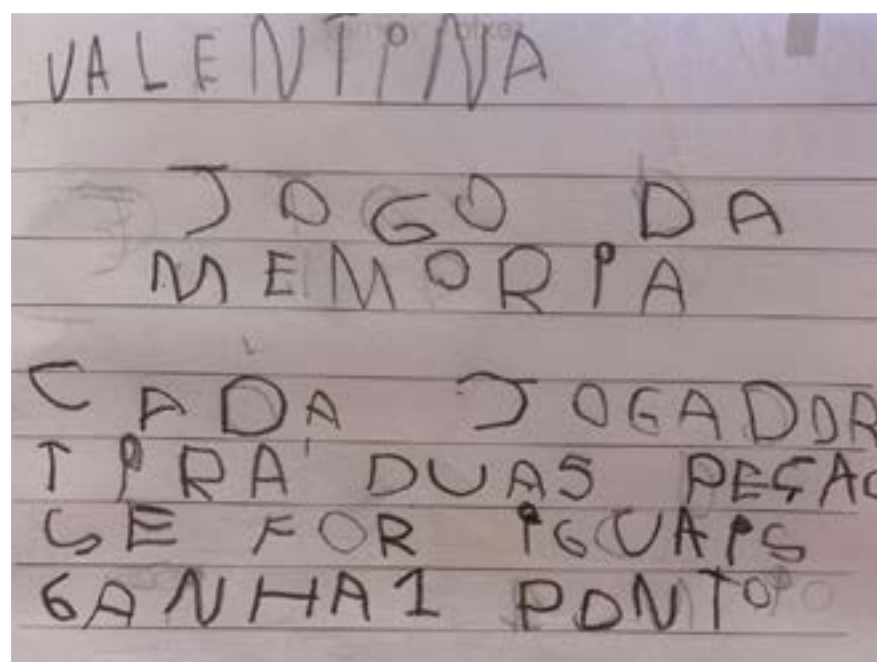 VALENTINA
JOGO DA
MEMORIA
CADA JOGADOR
TIRA DUAS PEÇAS
SE FOR IGUAIS
GANHA 1 PONTO